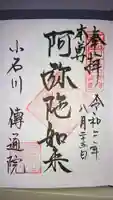 奉拝 令和二年
八月二十五日
本尊
阿弥陀如来
小石川 傳通院